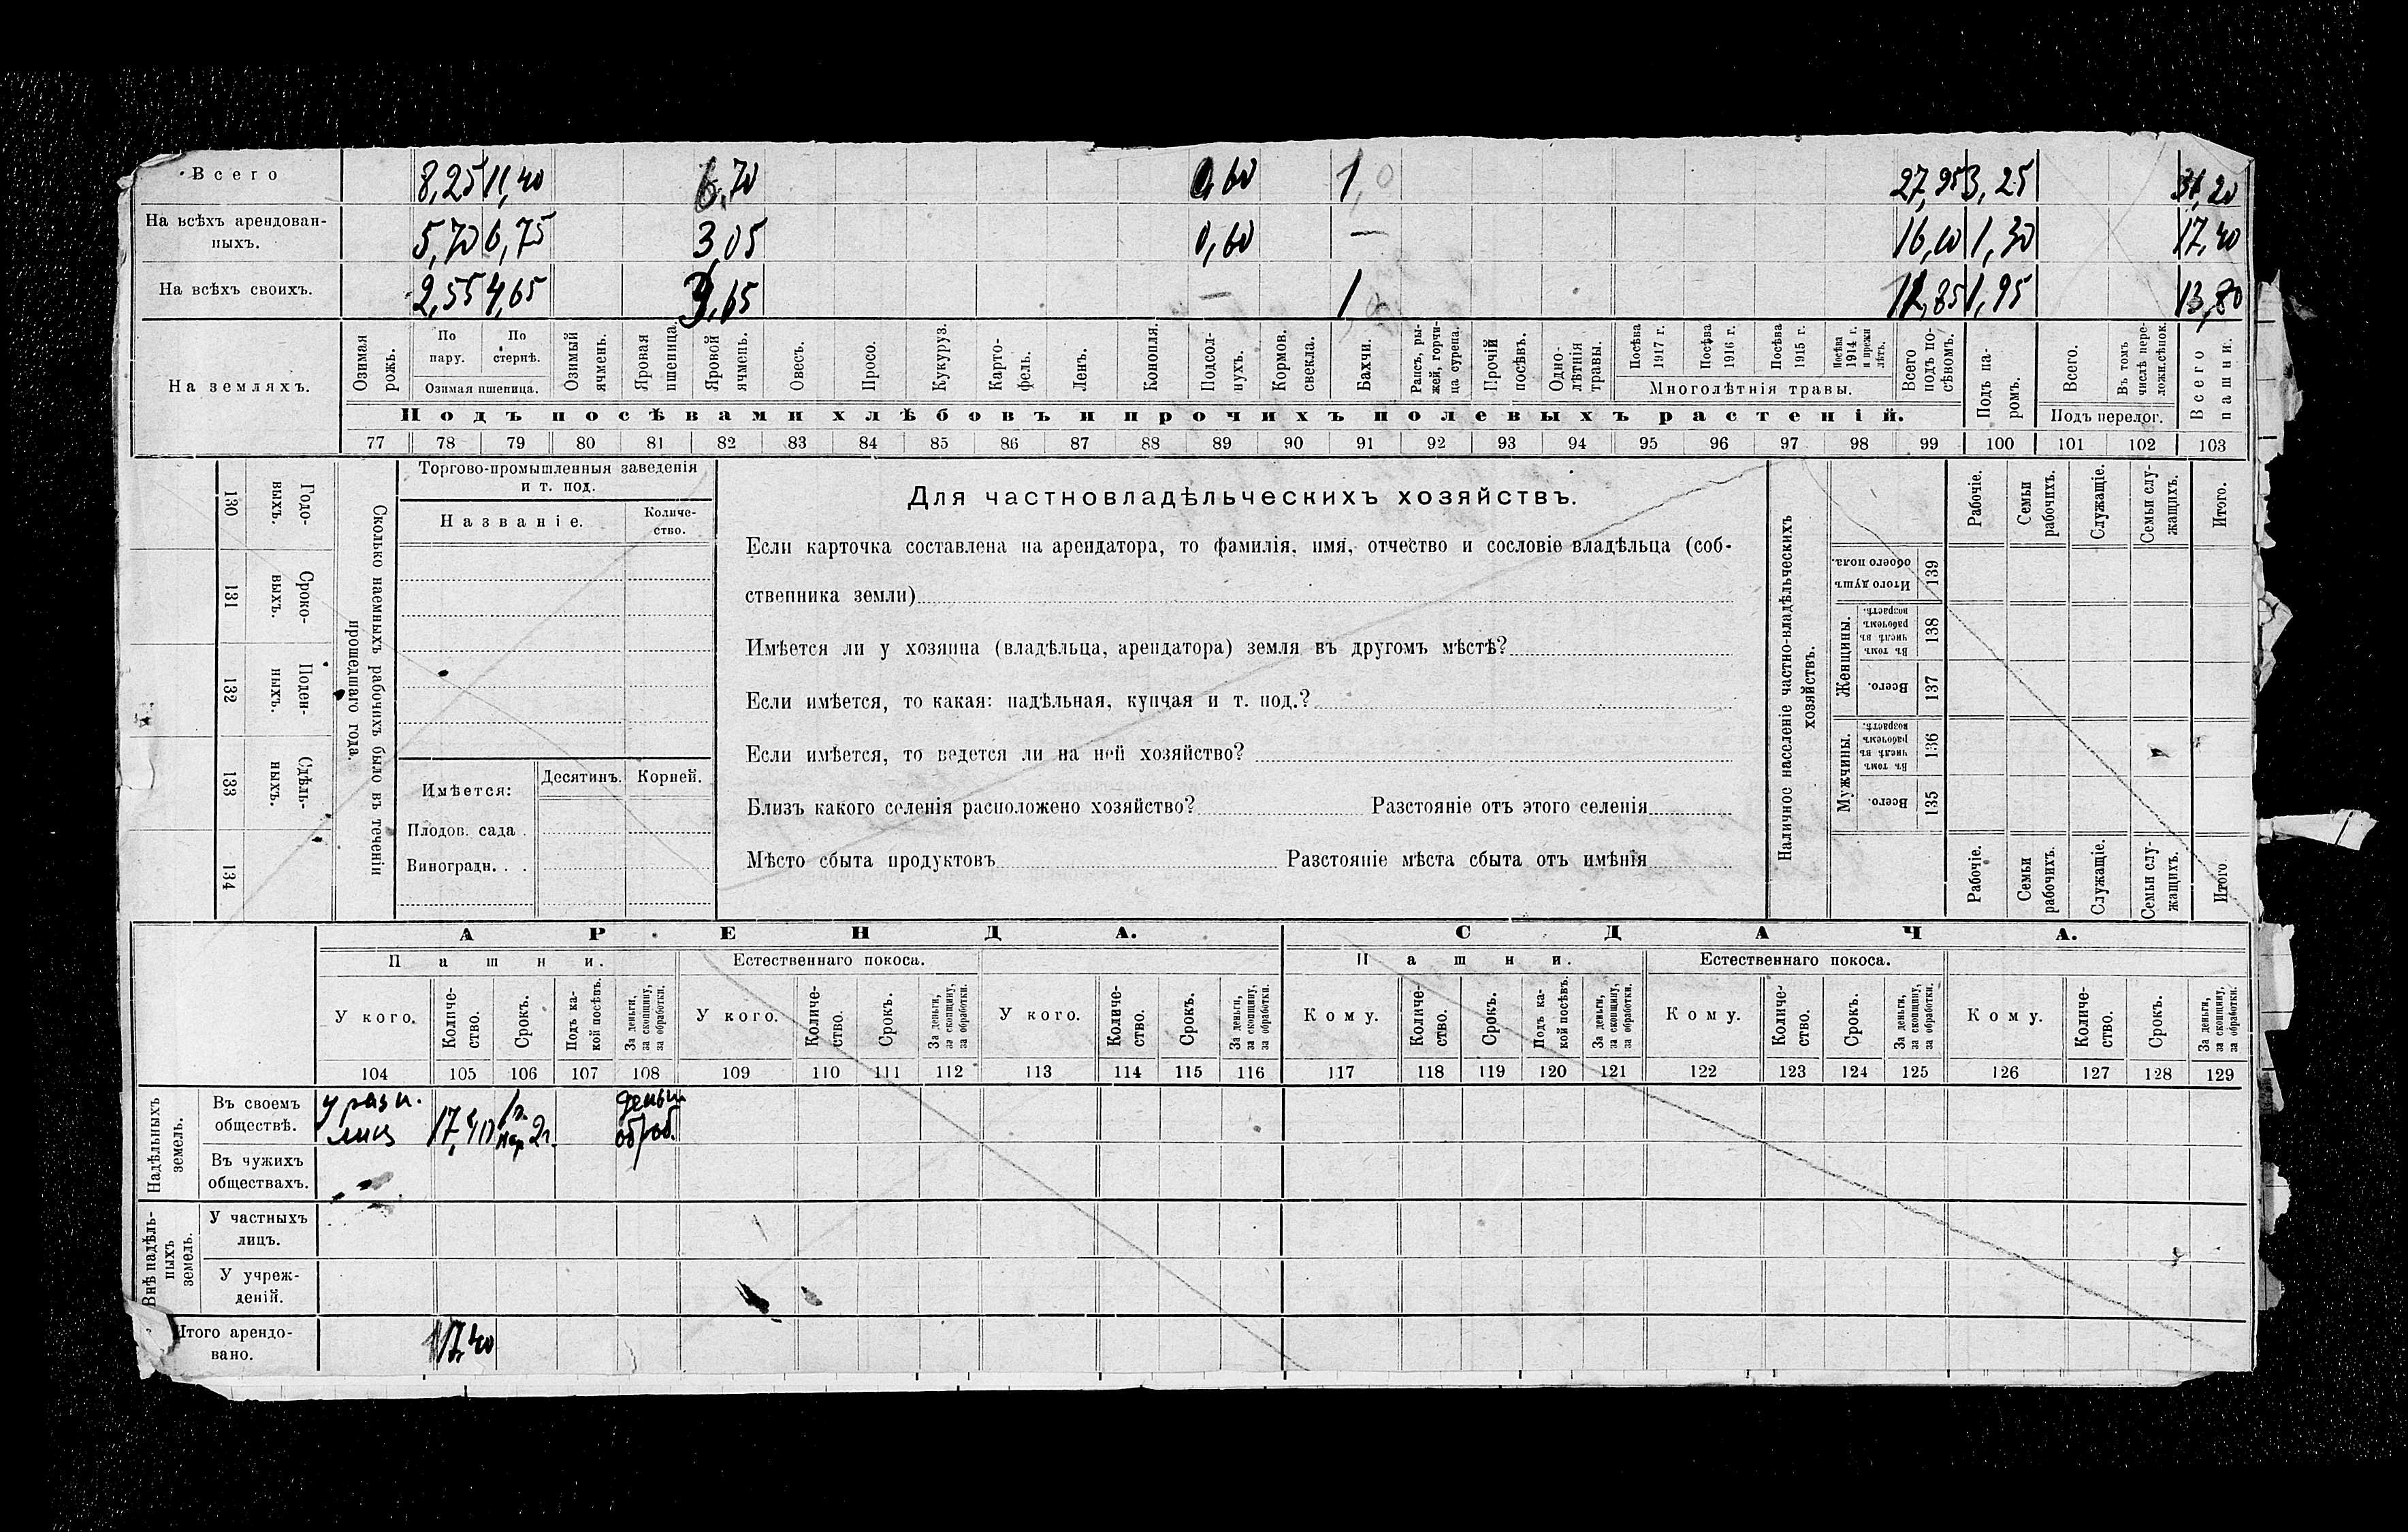 Всего 8,25 11,40 6,70 0,60 1,0 27,95 3,25 31,20
На всѣхъ арендован-
ныхъ. 5,70 6,75 3,05 0,60 — 16,10 1,30 17,40
На всѣхъ своихъ. 2,55 4,65 3,65 — 1 11,85 1,95 13,80
На земляхъ.
Озимая рожь.
По пару.
По стернѣ.
Озимая пшеница.
Озимый ячмень.
Яровая пшеница.
Яровой ячмень.
Овесъ.
Просо.
Кукуруз.
Карто-
фель.
Ленъ.
Конопля.
Подсол-
нухъ.
Кормов. свекла.
Бахчи.
Рапсъ, ры-
жей, горчи-
ца сурепа.
Прочій посѣвъ.
Одно-
лѣтнія травы.
Посѣва 1917 г.
Посѣва 1916 г.
Посѣва 1915 г.
Посѣва 1914 г. и прежн лѣтъ.
Многолѣтнія травы.
Всего подъ по-
сѣвомъ.
Подъ па-
ромъ.
Всего.
Въ томъ числѣ пере-
ложн.сѣнок.
Подъ перелог.
Всего пашни.
Подъ посѣвами хлѣбовъ и прочихъ полевыхъ растеній.
77 78 79 80 81 82 83 84 85 86 87 88 89 90 91 92 93 94 95 96 97 98 99 100 101 102 103
130 Годо-
выхъ.
131 Сроко-
выхъ.
132 Поден-
ныхъ.
133 Сдѣль-
ныхъ.
134
Сколько наемныхъ рабочихъ было въ теченіи
прошедшаго года.
Торгово-промышленныя заведенія
и т. под.
Названіе.
Количе-
ство.
Имѣется:
Десятинъ. Корней.
Плодов. сада .
Виноградн. . .
Для частновладѣльческихъ хозяйствъ.
Если карточка составлена на арендатора, то фамилія, имя, отчество и сословіе владѣльца (соб-
ственника земли)
Имѣется ли у хозяина (владѣльца, арендатора) земля въ другомъ мѣстѣ?
Если имѣется, то какая: надѣльная, купчая и т. под.?
Если имѣется, то ведется ли на ней хозяйство?
Близъ какого селенія расположено хозяйство? Разстояніе отъ этого селенія
Мѣсто сбыта продуктовъ Разстояніе мѣста сбыта отъ имѣнія
Наличное населеніе частно-владѣльческихъ
хозяйствъ.
Рабочіе.
Семьи рабочихъ.
Служащіе.
Семьи слу-
жащихъ.
Итого.
Итого душъ обоего пола. 139
Женщины.
Въ томъ числѣ въ рабочемъ возрастѣ. 138
Всего. 137
Мужчины.
Въ томъ числѣ въ рабочемъ возрастѣ. 136
Всего. 135
Рабочіе.
Семьи рабочихъ.
Служащіе.
Семьи слу-
жащихъ.
Итого
АРЕНДА.
СДАЧА.
Пашни.
Естественнаго покоса.
Пашни.
Естественнаго покоса.
У кого.
Количе-
ство.
Срокъ.
Подъ ка-
кой посѣвъ.
За деньги,
за скопщину,
за обработки.
У кого.
Количе-
ство.
Срокъ.
За деньги,
за скопщину,
за обработки.
У кого.
Количе-
ство.
Срокъ.
За деньги,
за скопщину,
за обработки.
Кому.
Количе-
ство.
Срокъ.
Подъ ка-
кой посѣвъ.
За деньги,
за скопщину,
за обработки.
Кому.
Количе-
ство.
Срокъ.
За деньги,
за скопщину,
за обработки.
Кому.
Количе-
ство.
Срокъ.
За деньги,
за скопщину,
за обработки.
104 105 106 107 108 109 110 111 112 113 114 115 116 117 118 119 120 121 122 123 124 125 126 127 128 129
Надѣльныхъ
земель.
Въ своемъ
обществѣ.
у разн.
лиц 17,40
Въ чужихъ
обществахъ.
Внѣ надѣль-
ныхъ
земель.
У частныхъ
лицъ.
У учреж-
деній.
Итого арендо-
вано. 17,40